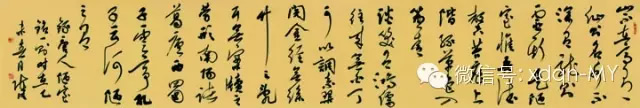 山不在高有
仙則名水不在
深有龍則
靈斯是陋
室惟吾德
馨苔痕上
階綠草色入
簾青
談笑有鴻儒
往來無白丁
可以調素琴
閱金經無絲
竹之亂
耳無案牘之
勞形南陽諸
葛廬西蜀
子雲亭孔
子云何陋
之有
錄唐人陋室
銘
微信号：xdqn-MY